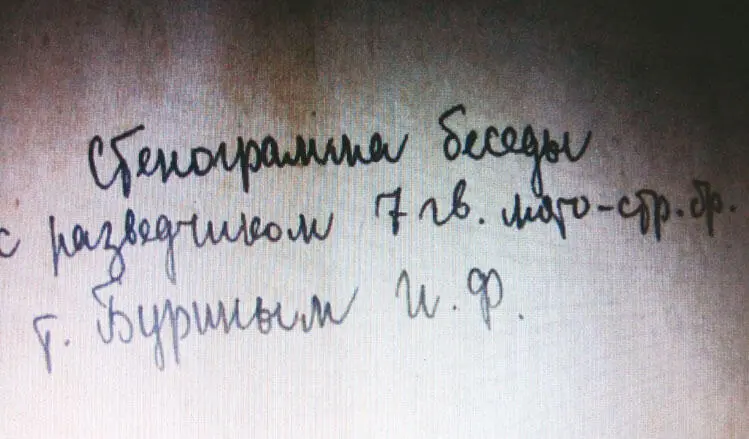 Стенограмма беседы
с разведчиком 7 гв. мото-стр. бр.
т. Буриным И. Ф.